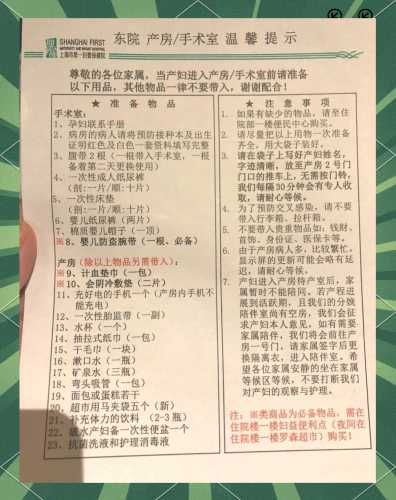 SHANGHAI FIRST
MATERNITY AND INFANT HOSPITAL
上海市第一妇婴保健院
东院 产房/手术室 温馨提示
尊敬的各位家属，当产妇进入产房/手术室前请准备
以下用品，其他物品一律不要带入，谢谢配合！
★ 准备物品
手术室：
1. 孕妇联系手册
2. 病房的病人请将预防接种本及出生
证明红色及白色一套资料填写完整
3. 腹带2根（一根带入手术室，一根
备着第二天更换使用）
4. 一次性成人纸尿裤
(剖:一片/顺:十片)
5. 一次性床垫
(剖:一片/顺:十片)
6. 婴儿纸尿裤（两片）
7. 棉质婴儿帽子（一顶）
※8. 婴儿防盗腕带（一根、必备）
产房（除以上物品另需带入）：
※9、计血垫巾（一包）
※10、会阴冷敷垫（二片）
11、充好电的手机一个（产房内手机不
能充电）
12、一次性胎监带（一副）
13、水杯（一个）
14、抽拉式纸巾（一包）
15、干毛巾（一块）
16、漱口水（一瓶）
17、矿泉水（三瓶）
18、弯头吸管（一包）
19、面包或蛋糕若干
20、超市用马夹袋五个（新）
21、补充体力的饮料（2-3瓶）
22、破水产妇备一次性便盆一个
23、抗菌洗液和护理消毒液
★ 注意事项
1. 如果有缺少的物品，请至住
院部一楼便民中心购买。
2. 请尽量把以上用物一次准备
齐全，用大袋子装好。
3. 请在袋子上写好产妇姓名，
字迹清晰，放至产房2号
门口的推车上，无需按门铃，
我们每隔30分钟会有专人收
取，请耐心等候。
4. 为了预防交叉感染，请不要
带入行李箱、拉杆箱。
5. 不要带入贵重物品如：钱财、
首饰、身份证、医保卡等。
6. 由于产房病人多，比较繁忙，
显示屏的更新可能会略有延
迟，请耐心等候。
7. 产妇进入产房待产室后，家
属暂时不能陪同。若产程进
展到活跃期，且我们的分娩
陪伴室尚有空房，我们会征
求产妇本人意见，如有需要
家属陪伴，我们将会前往产
房一号门，请家属签字后更
换隔离衣，进入陪伴室。希
望各位家属安静的坐在家属
等候区等候，不要打断我们
对产妇的观察与护理。
注：※类商品为必备物品，需在
住院楼一楼妇益便利点（夜间在
住院楼一楼罗森超市）购买！